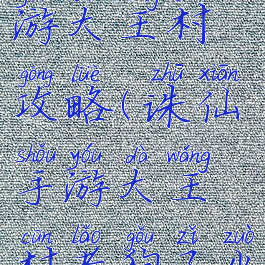 游大王村
gōng lüè zhū xiān
攻略(诛仙
shǒu yóu dà wáng
手游大王
cūn lǎo gǒu zǐ zuò